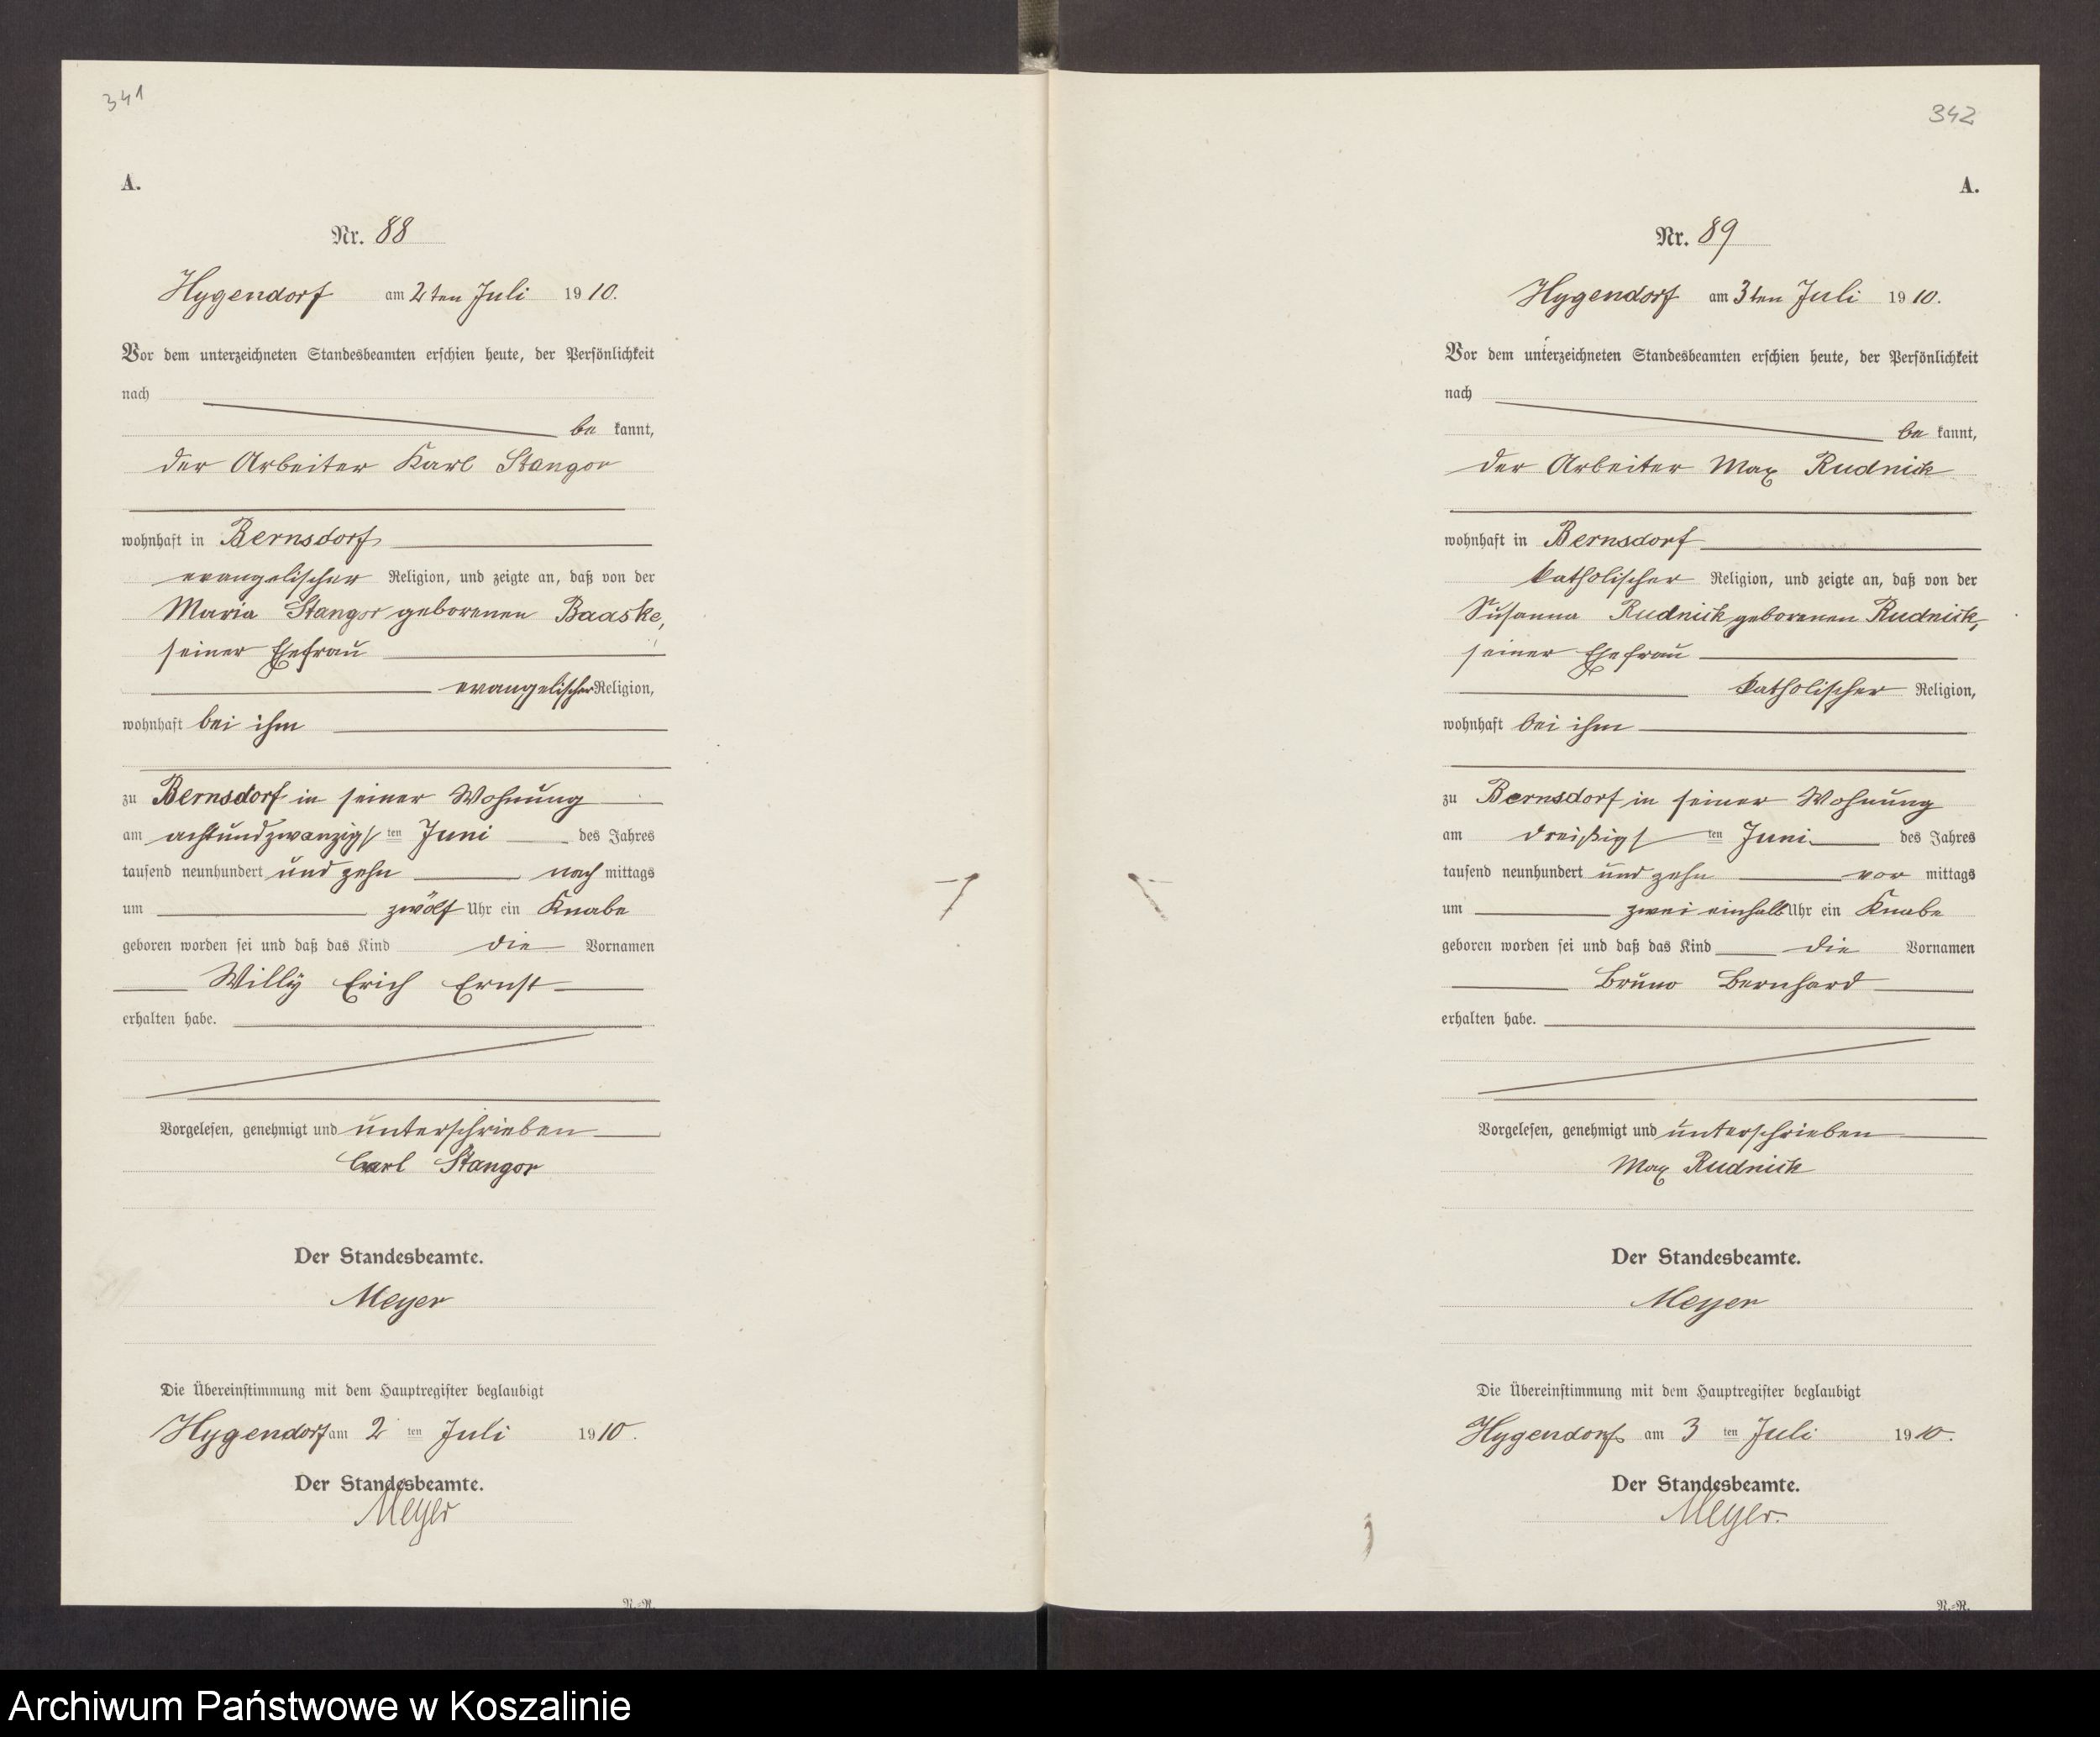 341
A.
Nr. 88
Hygendorf am 2ten Juli 1910.
Vor dem unterzeichneten Standesbeamten erschien heute, der Persönlichkeit
nach
be kannt,
der Arbeiter Karl Stangor
wohnhaft in Bernsdorf
evangelischer Religion, und zeigte an, daß von der
Maria Stangor geborenen Baaske,
seiner Ehefrau
evangelischer Religion,
wohnhaft bei ihm
zu Bernsdorf in seiner Wohnung
am achtundzwanzigsten Juni des Jahres
tausend neunhundert und zehn nach mittags
um zwölf Uhr ein Knabe
geboren worden sei und daß das Kind die Vornamen
Willy Erich Ernst
erhalten habe.
Vorgelesen, genehmigt und unterschrieben
Carl Stangor
Der Standesbeamte.
Meyer
Die Übereinstimmung mit dem Hauptregister beglaubigt
Hygendorf am 2 ten Juli 1910.
Der Standesbeamte.
Meyer
N.-R.
342
A.
Nr. 89
Hygendorf am 3ten Juli 1910.
Vor dem unterzeichneten Standesbeamten erschien heute, der Persönlichkeit
nach
be kannt,
der Arbeiter Max Rudnick
wohnhaft in Bernsdorf
katholischer Religion, und zeigte an, daß von der
Susanna Rudnick geborenen Rudnick,
seiner Ehefrau
katholischer Religion,
wohnhaft bei ihm
zu Bernsdorf in seiner Wohnung
am dreißigsten Juni des Jahres
tausend neunhundert und zehn vor mittags
um zwei einhalb Uhr ein Knabe
geboren worden sei und daß das Kind die Vornamen
Bruno Bernhard
erhalten habe.
Vorgelesen, genehmigt und unterschrieben
Max Rudnick
Der Standesbeamte.
Meyer
Die Übereinstimmung mit dem Hauptregister beglaubigt
Hygendorf am 3 ten Juli 1910.
Der Standesbeamte.
Meyer.
N.-R.
Archiwum Państwowe w Koszalinie